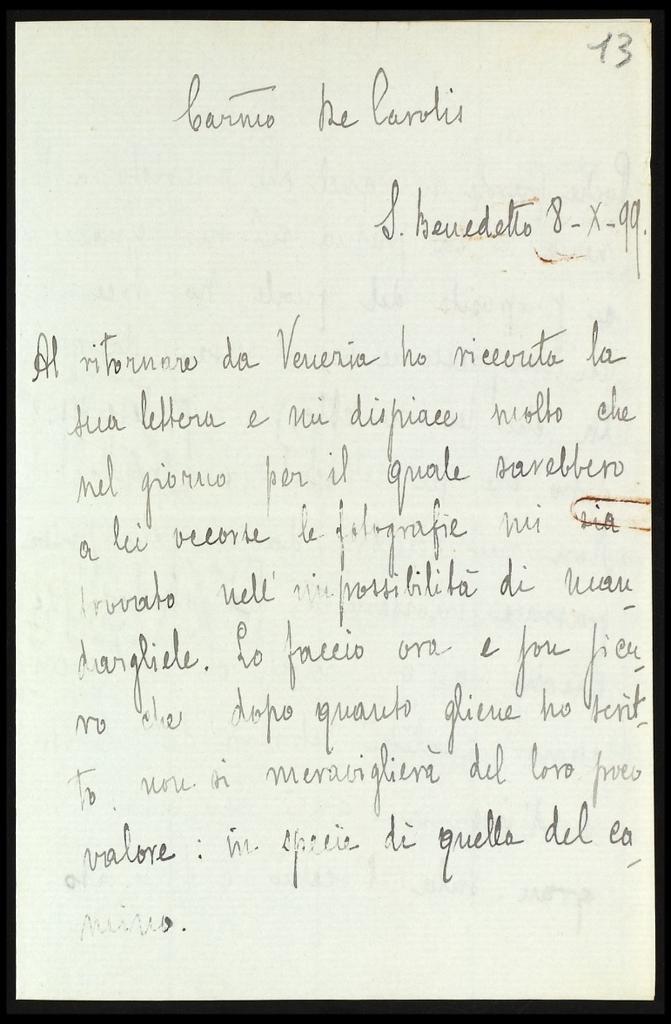 13
Carmo De Carolis
S. Benedetto 8-X-99.
Al ritornare da Venezia ho ricevuta la
sua lettera e mi dispiace molto che
nel giorno per il quale sarebbero
a lei occorse le fotografie mi sia
trovato nell'impossibilità di man-
dargliele. Lo faccio ora e son sicu-
ro che dopo quanto gliene ho scrit-
to, non si meraviglierà del loro poco
valore: in specie di quella del ca-
mino.